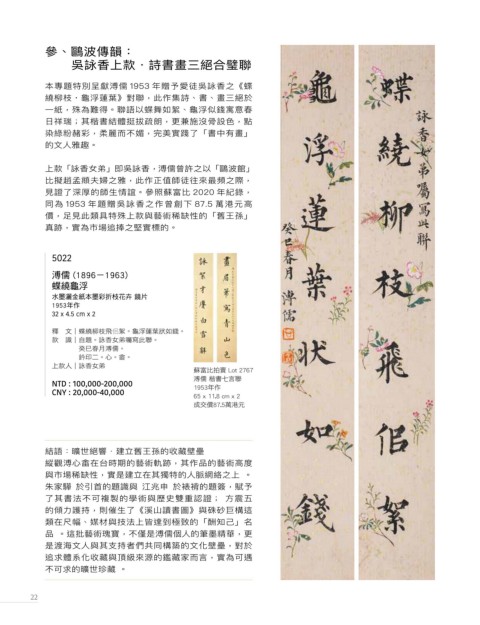 參、鷗波傳韻：
吳詠香上款．詩書畫三絕合璧聯
本專題特別呈獻溥儒 1953 年贈予愛徒吳詠香之《蝶
繞柳枝，龜浮蓮葉》對聯，此作集詩、書、畫三絕於
一紙，殊為難得。聯語以蝶舞如絮、龜浮似錢寓意春
日祥瑞；其楷書結體挺拔疏朗，更兼施沒骨設色，點
染綠粉赭彩，柔麗而不媚，完美實踐了「書中有畫」
的文人雅趣。
上款「詠香女弟」即吳詠香，溥儒曾許之以「鷗波館」
比擬趙孟頫夫婦之雅，此作正值師徒往來最頻之際，
見證了深厚的師生情誼。參照蘇富比 2020 年紀錄，
同為 1953 年題贈吳詠香之作曾創下 87.5 萬港元高
價，足見此類具特殊上款與藝術稀缺性的「舊王孫」
真跡，實為市場追捧之堅實標的。
5022
溥儒 (1896－1963)
蝶繞龜浮
水墨灑金紙本墨彩折枝花卉 鏡片
1953年作
32 x 4.5 cm x 2
釋　文｜蝶繞柳枝飛佀絮，龜浮蓮葉狀如錢。
款　識｜自題。詠香女弟囑寫此聯。
癸巳春月溥儒。
鈐印二。心。畬。
上款人｜詠香女弟
NTD : 100,000-200,000
CNY : 20,000-40,000
畫眉筆寫青山色
詠絮才摩白雪辭
蘇富比拍賣 Lot 2767
溥儒 楷書七言聯
1953年作
65 x 11.8 cm x 2
成交價87.5萬港元
結語：曠世絕響．建立舊王孫的收藏壁壘
縱觀溥心畬在台時期的藝術軌跡，其作品的藝術高度
與市場稀缺性，實是建立在其獨特的人脈網絡之上 。
朱家驊 於引首的題識與 江兆申 於裱褙的題簽，賦予
了其書法不可複製的學術與歷史雙重認證； 方震五
的傾力護持，則催生了《溪山讀書圖》與硃砂巨構這
類在尺幅、媒材與技法上皆達到極致的「酬知己」名
品 。這批藝術瑰寶，不僅是溥儒個人的筆墨精華，更
是渡海文人與其支持者們共同構築的文化壁壘，對於
追求體系化收藏與頂級來源的鑑藏家而言，實為可遇
不可求的曠世珍藏 。
詠香女弟囑寫此聯
蝶繞柳枝飛佀絮
龜浮蓮葉狀如錢
癸巳春月 溥儒
22